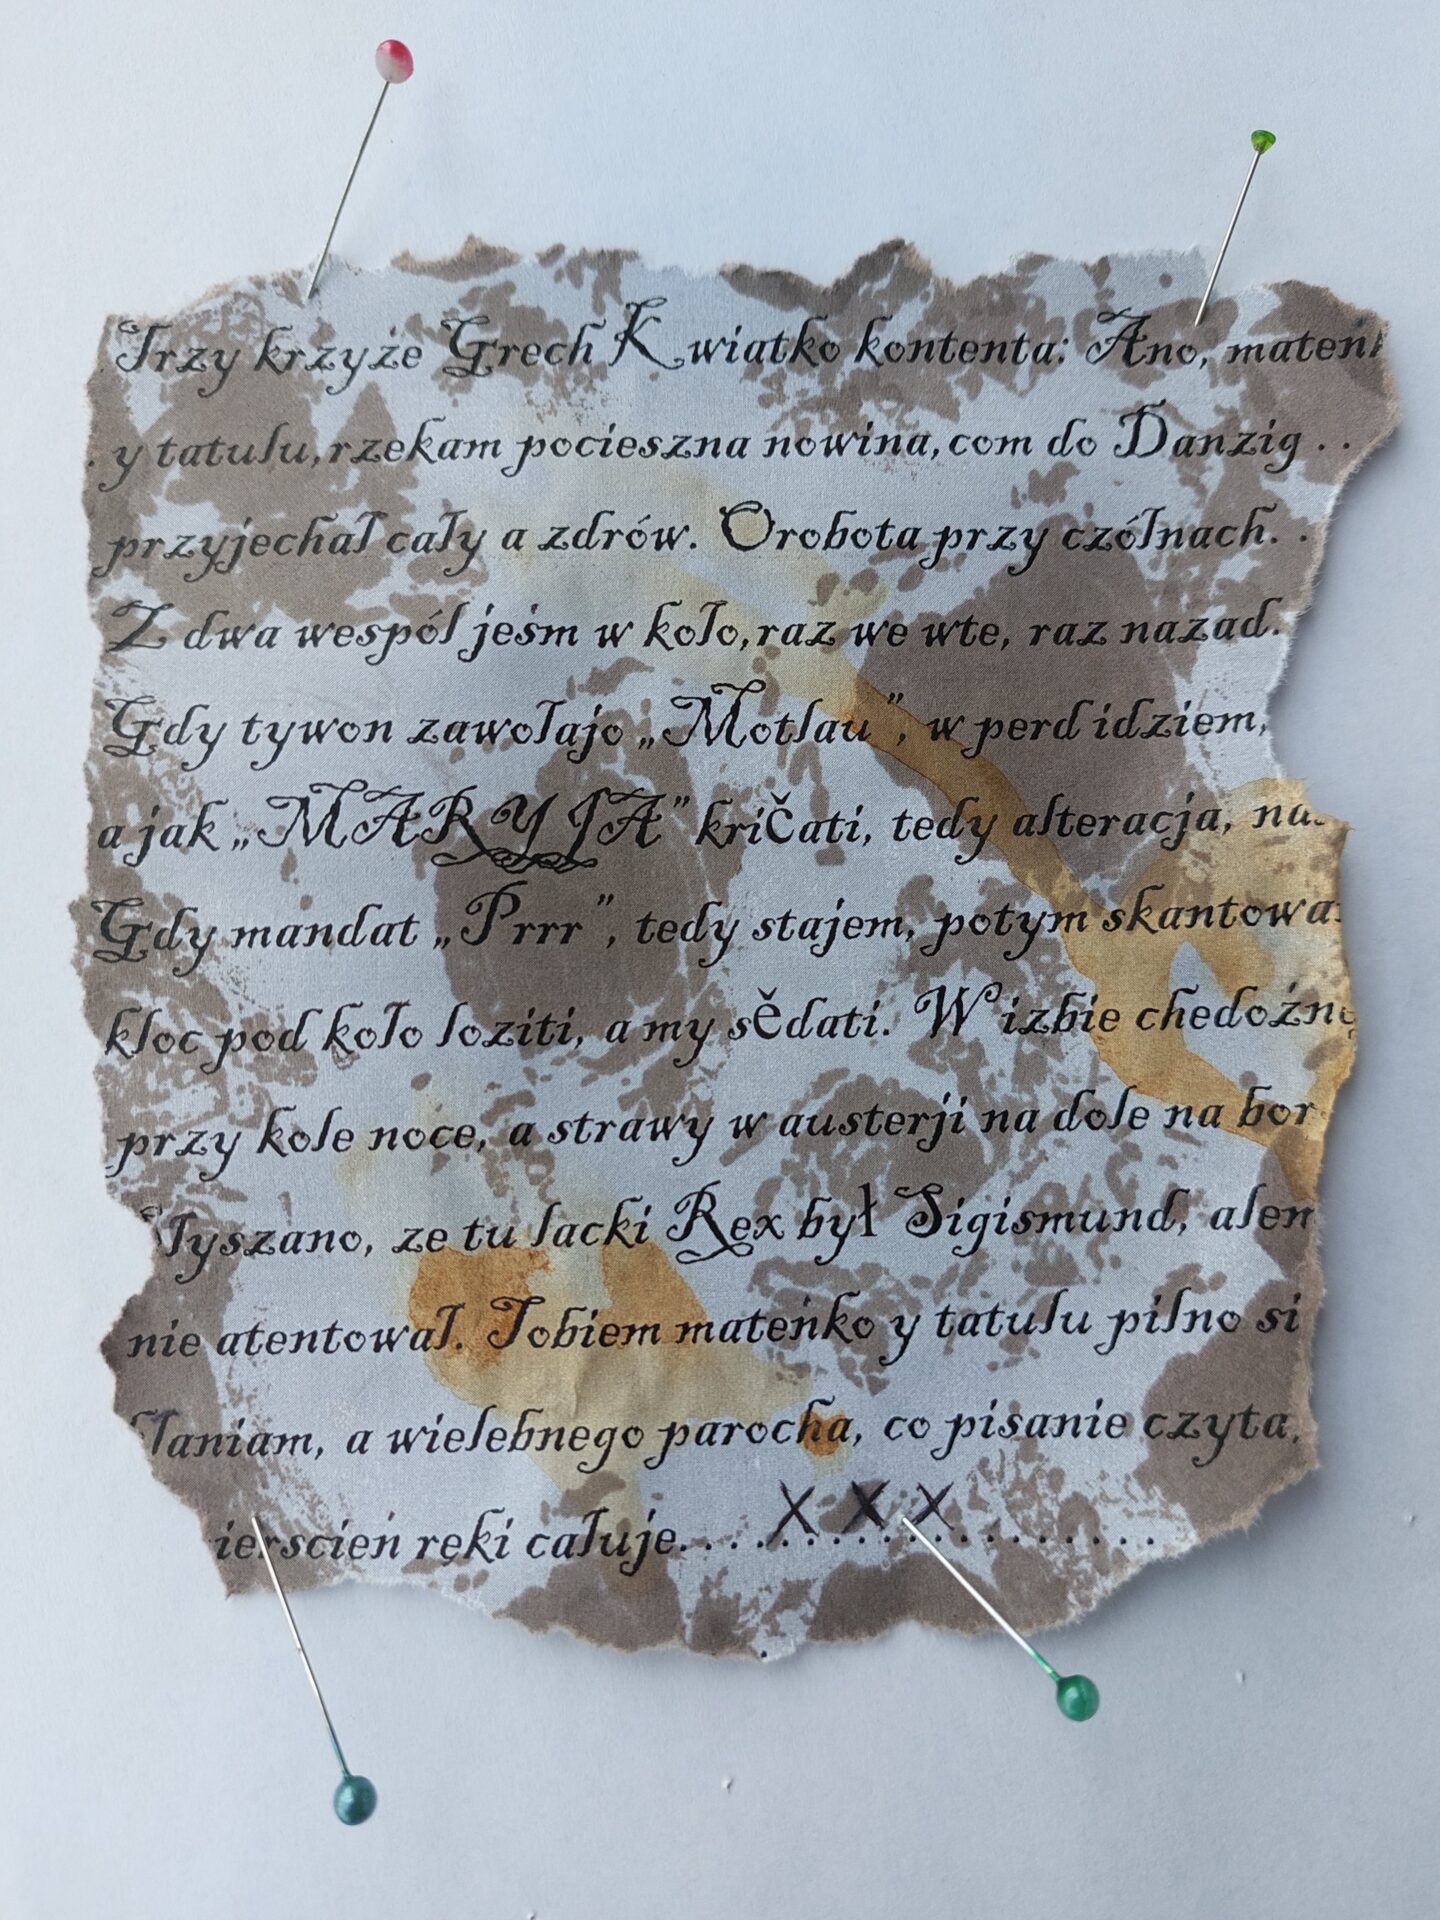 Trzy krzyże Grech Kwiatko kontenta: Ano, mateńk
. y tatulu, rzekam pocieszna nowina, com do Danzig . .
przyjechał cały a zdrów. Orobota przy czółnach. .
Z dwa wespół jeśm w koło, raz we wte, raz nazad.
Gdy tywon zawołajo „Motlau”, w perd idziem,
a jak „MARYJA” kričati, tedy alteracja, na
Gdy mandat „Prrr”, tedy stajem, potym skantowa
kloc pod koło loziti, a my sědati. W izbie chedożno
przy kole noce, a strawy w austerji na dole na bor
słyszano, ze tu lacki Rex był Sigismund, alem
nie atentował. Tobiem mateńko y tatulu pilno si
kłaniam, a wielebnego parocha, co pisanie czyta,
ierscień ręki całuje. . . . . . . . . . . . . . . . . . . .
X X X